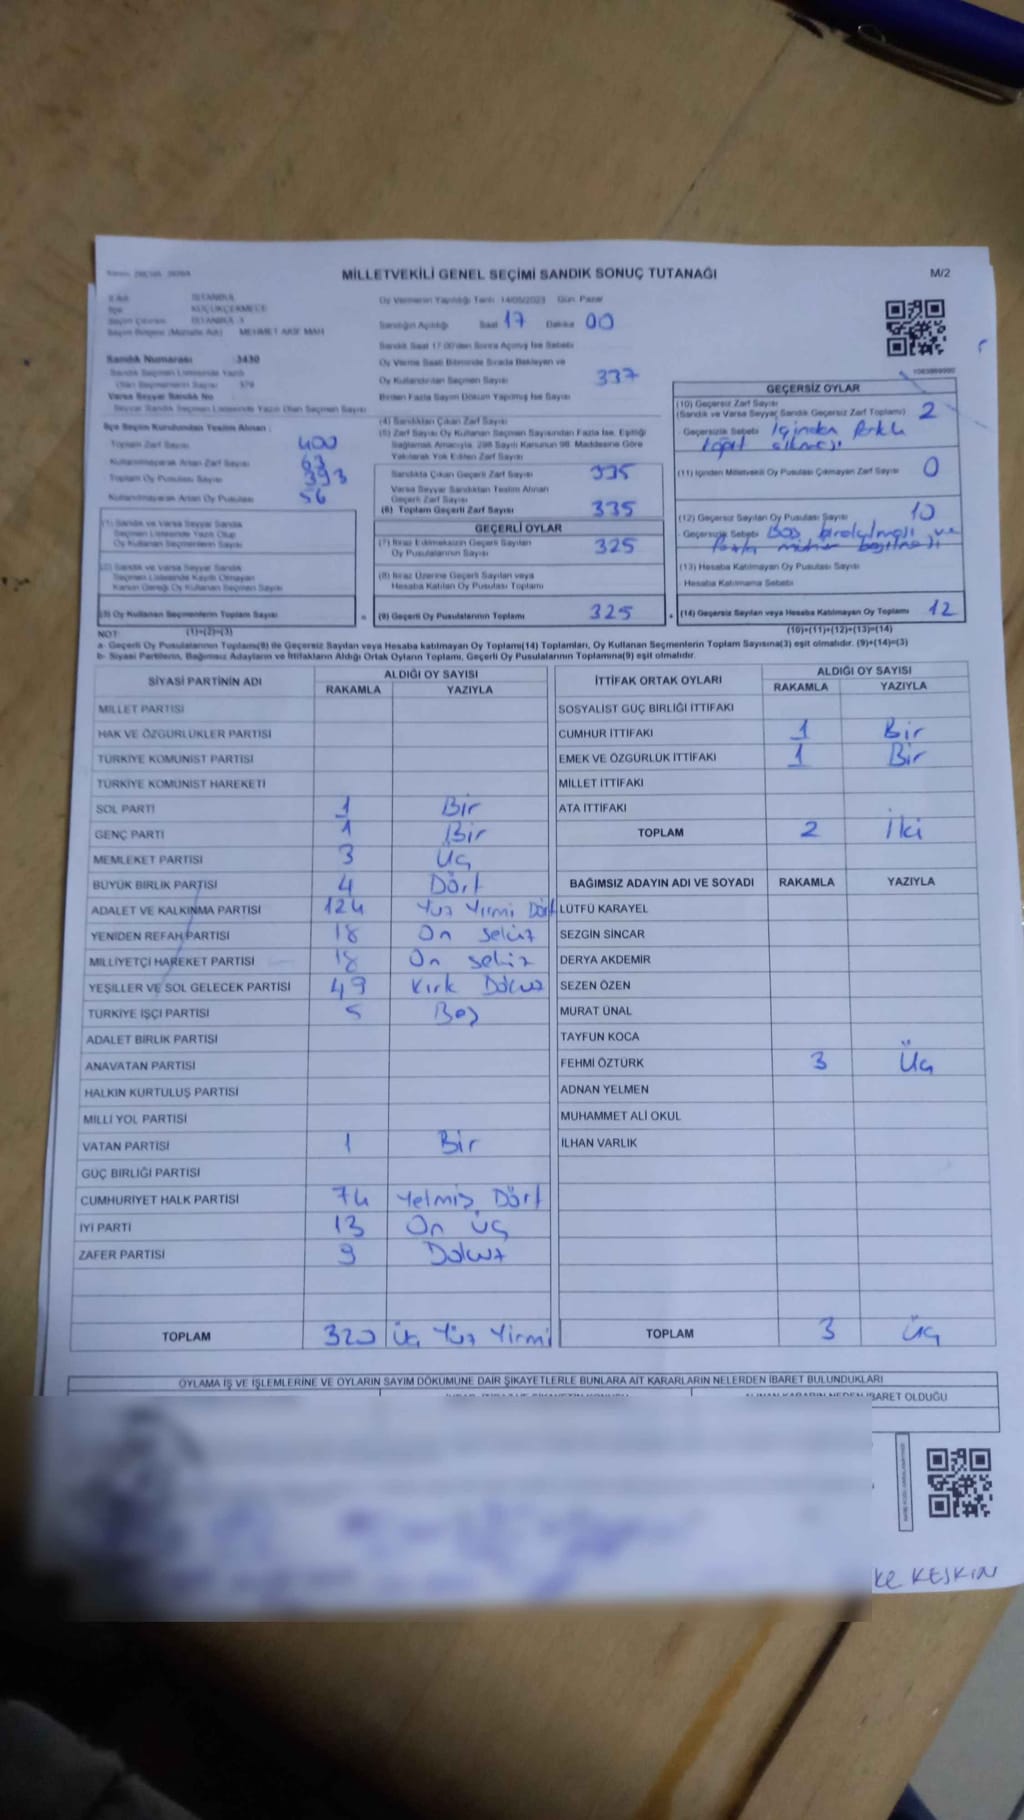 MİLLETVEKİLİ GENEL SEÇİMİ SANDIK SONUÇ TUTANAĞI
M/2
Oy Vermenin Yapıldığı Tarih 14/05/2023 Gün Pazar
İSTANBUL
KÜÇÜKÇEKMECE
MEHMET AKİF MAH
Sandığın Açıldığı Saat 17 Dakika 00
Sandık Saat 17.00'den Sonra Açılmış İse Sebebi
Sandık Numarası 3430
Oy Verme Saati Bitiminde Sırada Bekleyen ve
Oy Kullandırılan Seçmen Sayısı
337
Birden Fazla Sayım Döküm Yapılmış İse Sayısı
Varsa Seyyar Sandık No
İlçe Seçim Kurulundan Teslim Alınan :
Toplam Zarf Sayısı 400
Kullanılmayarak Artan Zarf Sayısı 63
Toplam Oy Pusulası Sayısı 393
Kullanılmayarak Artan Oy Pusulası 56
(1) Sandık ve Varsa Seyyar Sandık
Seçmen Listesinde Yazılı Olup
Oy Kullanan Seçmenlerin Sayısı
(2) Sandık ve Varsa Seyyar Sandık
Seçmen Listesinde Kayıtlı Olmayan
Kanun Gereği Oy Kullanan Seçmenlerin Sayısı
(3) Oy Kullanan Seçmenlerin Toplam Sayısı
(1)+(2)=(3)
(4) Sandıktan Çıkan Zarf Sayısı
(5) Zarf Sayısı Oy Kullanan Seçmen Sayısından Fazla İse, Eşitliği
Sağlamak Amacıyla, 298 Sayılı Kanunun 98. Maddesine Göre
Yakılarak Yok Edilen Zarf Sayısı
Sandıkta Çıkan Geçerli Zarf Sayısı 335
Varsa Seyyar Sandıktan Teslim Alınan
Geçerli Zarf Sayısı
(6) Toplam Geçerli Zarf Sayısı 335
GEÇERLİ OYLAR
(7) İtiraz Edilmeksizin Geçerli Sayılan
Oy Pusulalarının Sayısı
325
(8) İtiraz Üzerine Geçerli Sayılan veya
Hesaba Katılan Oy Pusulası Toplamı
(9) Geçerli Oy Pusulalarının Toplamı 325
GEÇERSİZ OYLAR
(10) Geçersiz Zarf Sayısı
(Sandık ve Varsa Seyyar Sandık Geçersiz Zarf Toplamı)
2
Geçersizlik Sebebi içinden farklı
kağıt çıkması
(11) İçinden Milletvekili Oy Pusulası Çıkmayan Zarf Sayısı 0
(12) Geçersiz Sayılan Oy Pusulası Sayısı 10
Geçersizlik Sebebi Boş bırakılması ve
fazla mühür basılması
(13) Hesaba Katılmayan Oy Pusulası Sayısı
Hesaba Katılmama Sebebi
(14) Geçersiz Sayılan veya Hesaba Katılmayan Oy Toplamı 12
(10)+(11)+(12)+(13)=(14)
NOT:
a- Geçerli Oy Pusulalarının Toplamı(9) ile Geçersiz Sayılan veya Hesaba katılmayan Oy Toplamı(14) Toplamları, Oy Kullanan Seçmenlerin Toplam Sayısına(3) eşit olmalıdır. (9)+(14)=(3)
b- Siyasi Partilerin, Bağımsız Adayların ve İttifakların Aldığı Ortak Oyların Toplamı, Geçerli Oy Pusulalarının Toplamına(9) eşit olmalıdır.
SİYASİ PARTİNİN ADI ALDIĞI OY SAYISI
RAKAMLA YAZIYLA
MİLLET PARTİSİ
HAK VE ÖZGÜRLÜKLER PARTİSİ
TÜRKİYE KOMÜNİST PARTİSİ
TÜRKİYE KOMÜNİST HAREKETİ
SOL PARTİ 1 Bir
GENÇ PARTİ 1 Bir
MEMLEKET PARTİSİ 3 Üç
BÜYÜK BİRLİK PARTİSİ 4 Dört
ADALET VE KALKINMA PARTİSİ 124 Yüz Yirmi Dört
YENİDEN REFAH PARTİSİ 18 On sekiz
MİLLİYETÇİ HAREKET PARTİSİ 18 On sekiz
YEŞİLLER VE SOL GELECEK PARTİSİ 49 Kırk Dokuz
TÜRKİYE İŞÇİ PARTİSİ 5 Beş
ADALET BİRLİK PARTİSİ
ANAVATAN PARTİSİ
HALKIN KURTULUŞ PARTİSİ
MİLLİ YOL PARTİSİ
VATAN PARTİSİ 1 Bir
GÜÇ BİRLİĞİ PARTİSİ
CUMHURİYET HALK PARTİSİ 74 Yetmiş Dört
İYİ PARTİ 13 On üç
ZAFER PARTİSİ 9 Dokuz
TOPLAM 320 Üç Yüz Yirmi
İTTİFAK ORTAK OYLARI ALDIĞI OY SAYISI
RAKAMLA YAZIYLA
SOSYALİST GÜÇ BİRLİĞİ İTTİFAKI
CUMHUR İTTİFAKI 1 Bir
EMEK VE ÖZGÜRLÜK İTTİFAKI 1 Bir
MİLLET İTTİFAKI
ATA İTTİFAKI
TOPLAM 2 İki
BAĞIMSIZ ADAYIN ADI VE SOYADI RAKAMLA YAZIYLA
LÜTFÜ KARAYEL
SEZGİN SİNCAR
DERYA AKDEMİR
SEZEN ÖZEN
MURAT ÜNAL
TAYFUN KOCA
FEHMİ ÖZTÜRK 3 Üç
ADNAN YELMEN
MUHAMMET ALİ OKUL
İLHAN VARLIK
TOPLAM 3 Üç
OYLAMA İŞ VE İŞLEMLERİNE VE OYLARIN SAYIM DÖKÜMÜNE DAİR ŞİKAYETLERLE BUNLARA AİT KARARLARIN NELERDEN İBARET BULUNDUKLARI
ALINAN KARARIN NEDEN İBARET OLDUĞU
KESKİN